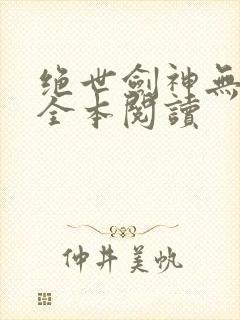 绝世劍神無
全本閱讀
仲井美帆